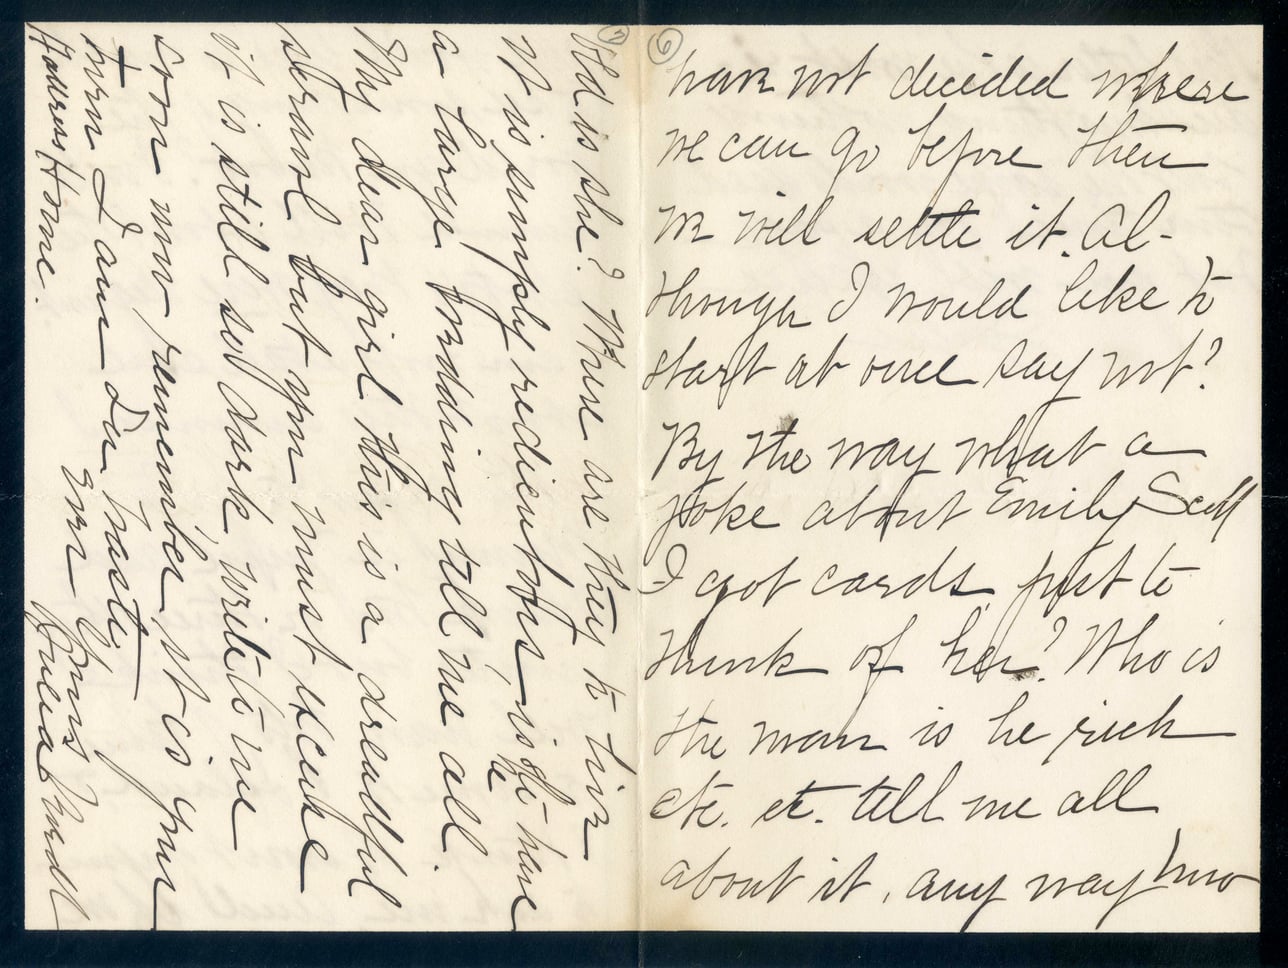 6
have not decided where
we can go before then
we will settle it. Al-
though I would like to
start at once say not?
By the way what a
joke about Emily Scull
I got cards just to
think of her? Who is
the man is he rich
etc. et. tell me all
about it, any way how
7
old is she? Where are they to live
It is simply rediculous - is she to have
a large wedding tell me all.
My dear girl this is a dreadful
scrawl but you must excuse
it is still so dark write to me
soon now remember, it is your
turn I am in haste
Yours
Address Home.